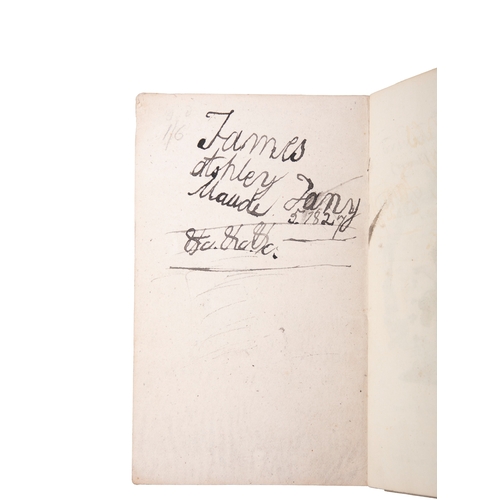 1/6
James
Ashley
Maude Jany
5. 1827
&c. &c &c.